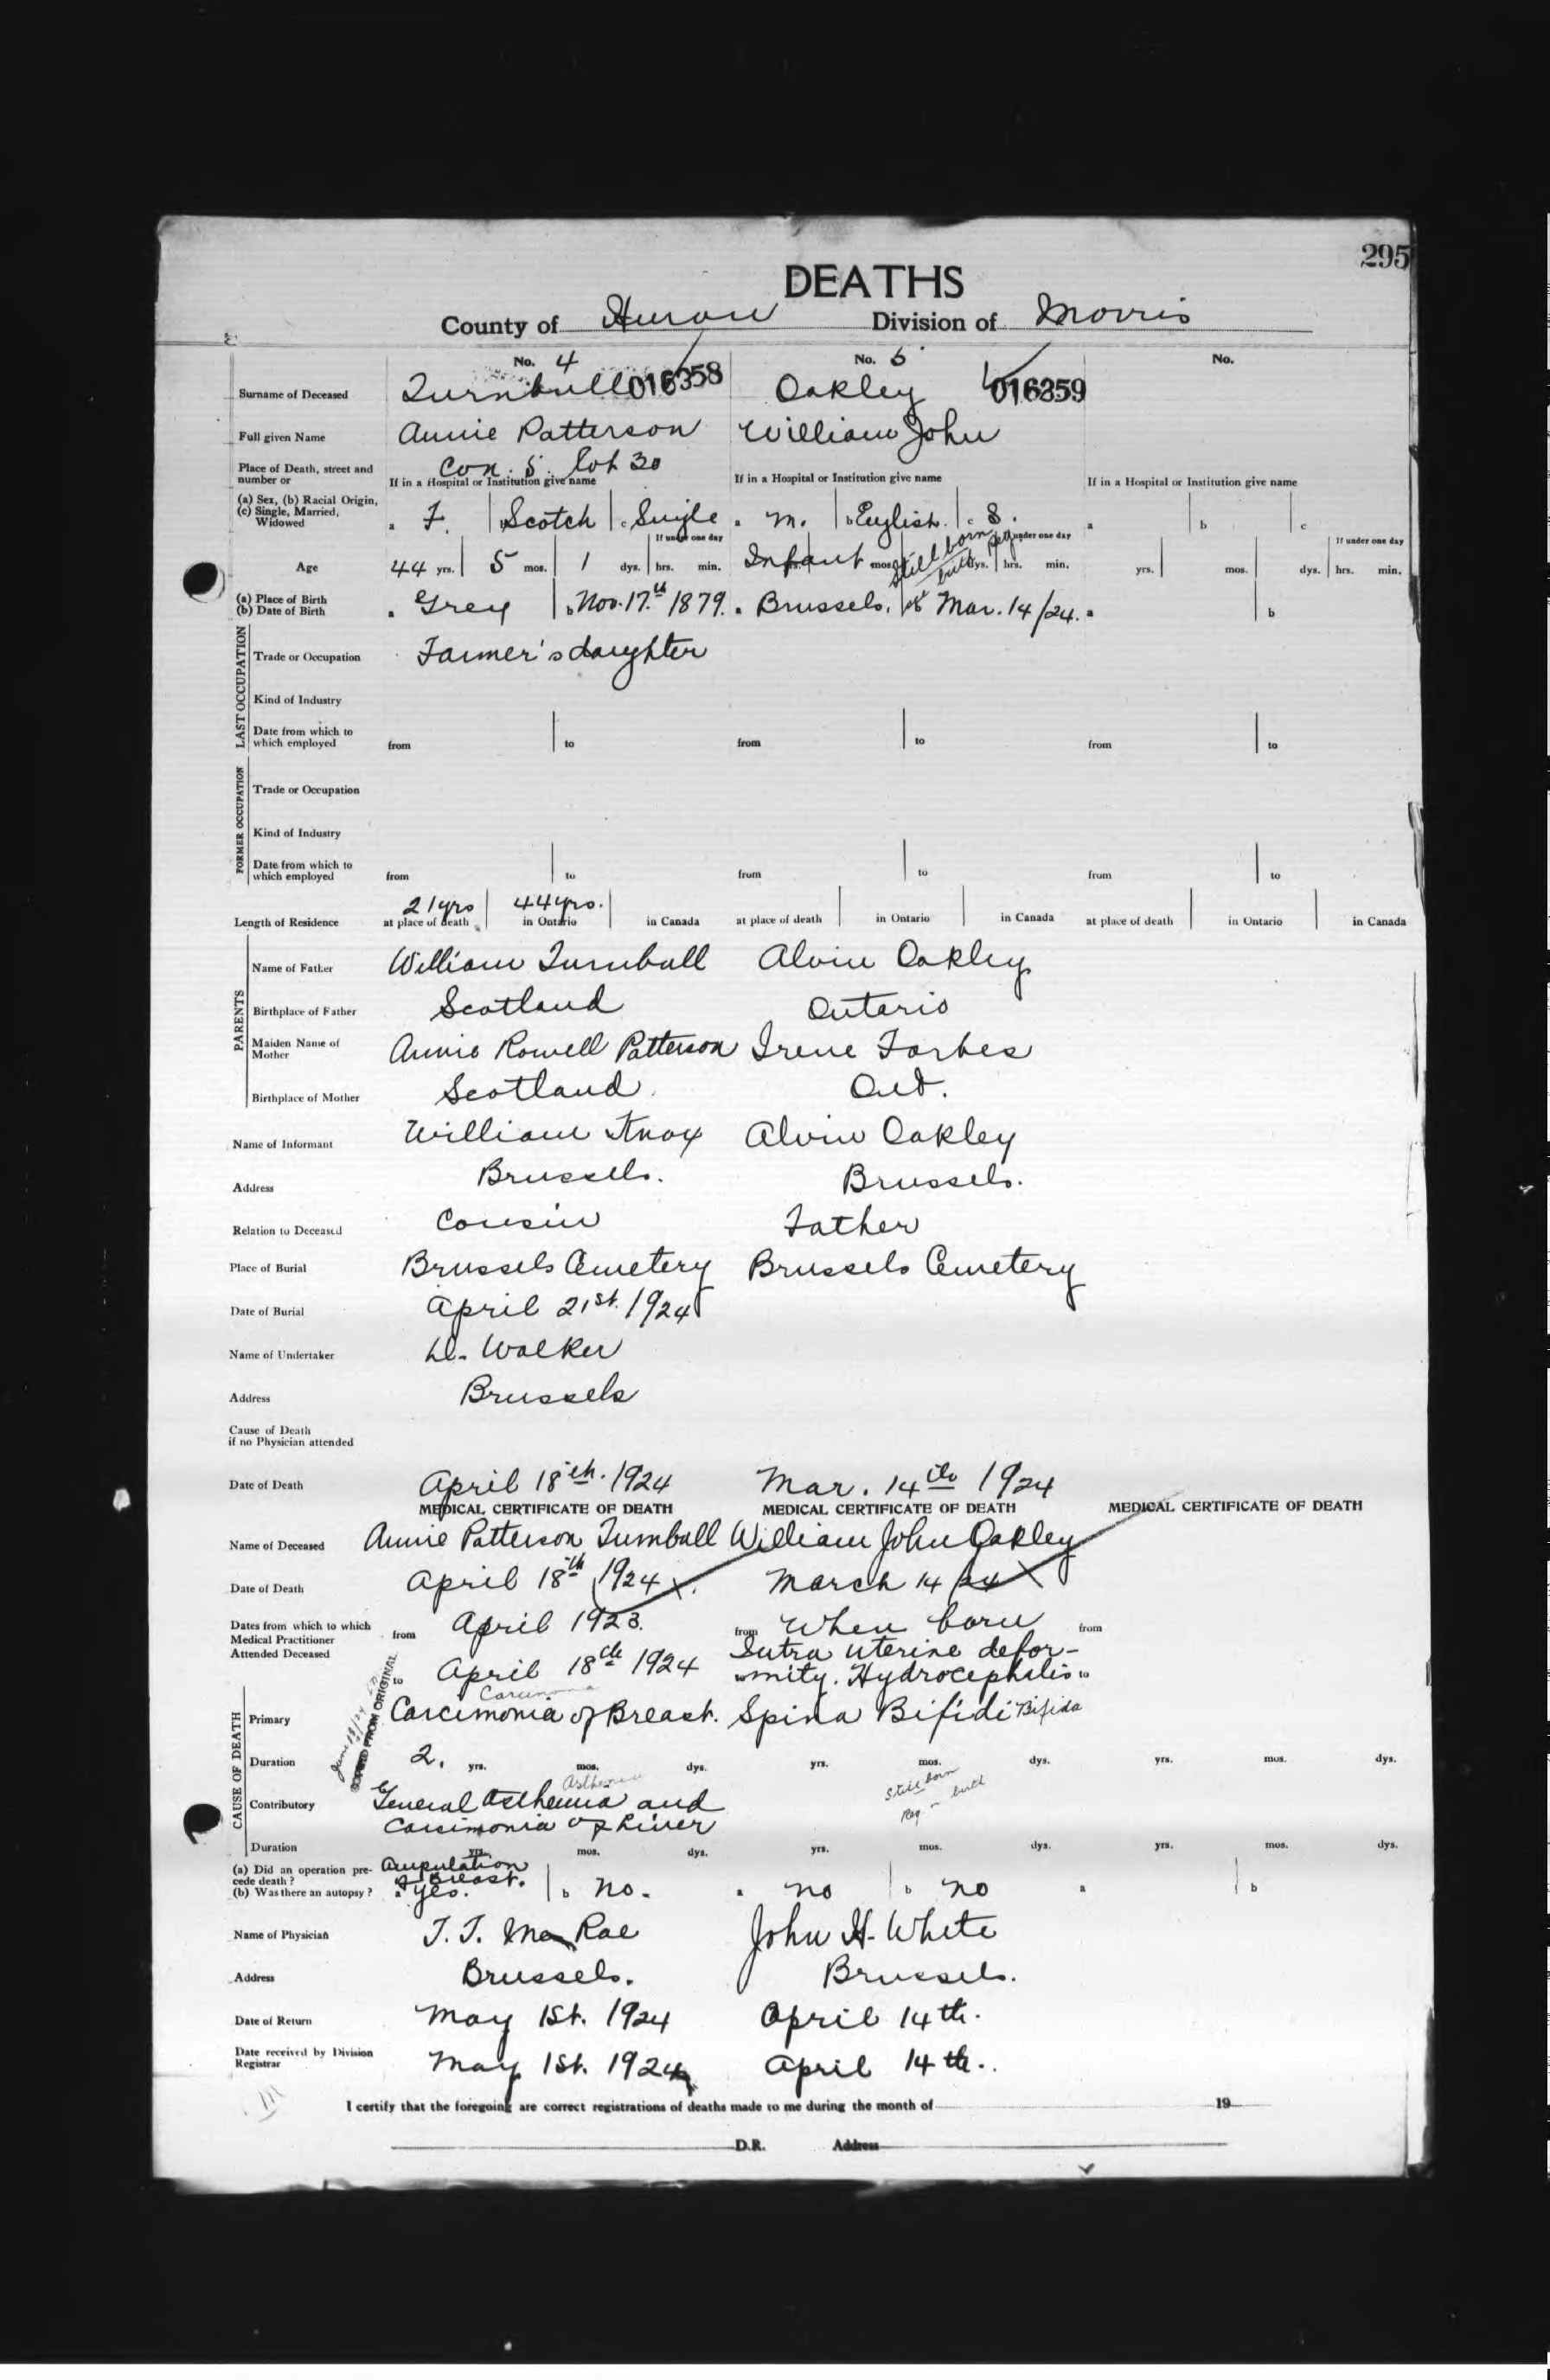 295
DEATHS
County of Huron Division of Morris
No. 4 No. 5 No.
Surname of Deceased Turnbull 016358 Oakley 016359
Full given Name Annie Patterson William John
Place of Death, street and number or Con. 5. lot 30
If in a Hospital or Institution give name If in a Hospital or Institution give name If in a Hospital or Institution give name
(a) Sex, (b) Racial Origin, (c) Single, Married, Widowed a F. b Scotch c Single a M. b English. c S. a b c
If under one day Still born Reg under one day If under one day
Age 44 yrs. 5 mos. 1 dys. hrs. min. Infant mos. birth dys. hrs. min. yrs. mos. dys. hrs. min.
(a) Place of Birth (b) Date of Birth a Grey b Nov. 17.th 1879. a Brussels. b Mar. 14/24. a b
LAST OCCUPATION
Trade or Occupation Farmer's daughter
Kind of Industry
Date from which to which employed from to from to from to
FORMER OCCUPATION
Trade or Occupation
Kind of Industry
Date from which to which employed from to from to from to
Length of Residence 21yrs at place of death 44yrs. in Ontario in Canada at place of death in Ontario in Canada at place of death in Ontario in Canada
PARENTS
Name of Father William Turnbull Alvin Oakley
Birthplace of Father Scotland Ontario
Maiden Name of Mother Annie Rowell Patterson Irene Forbes
Birthplace of Mother Scotland. Ont.
Name of Informant William Knox Alvin Oakley
Address Brussels. Brussels.
Relation to Deceased Cousin Father
Place of Burial Brussels Cemetery Brussels Cemetery
Date of Burial April 21st. 1924
Name of Undertaker Walker
Address Brussels
Cause of Death if no Physician attended
Date of Death April 18th. 1924 Mar. 14th 1924
MEDICAL CERTIFICATE OF DEATH MEDICAL CERTIFICATE OF DEATH MEDICAL CERTIFICATE OF DEATH
Name of Deceased Annie Patterson Turnbull William John Oakley
Date of Death April 18th 1924 March 14/24
Dates from which to which Medical Practitioner Attended Deceased from April 1923. from When born from
to April 18th 1924 Intra uterine deformity. Hydrocephalis to
June 18/24 COPIED FROM ORIGINAL
Carcinoma
CAUSE OF DEATH
Primary Carcimonia of Breast. Spina Bifidi Bifida
Duration 2. yrs. mos. dys. yrs. mos. dys. yrs. mos. dys.
Asthenia Still born
Contributory General Asthenia and Reg - birth
Carcimonia of Liver
Duration yrs. mos. dys. yrs. mos. dys. yrs. mos. dys.
(a) Did an operation precede death? (b) Was there an autopsy? Amputation of Breast. a yes. b no. a no b no a b
Name of Physician T. T. McRae John H. White
Address Brussels. Brussels.
Date of Return May 1st. 1924 April 14th.
Date received by Division Registrar May 1st. 1924 April 14th.
I certify that the foregoing are correct registrations of deaths made to me during the month of 19
D.R. Address